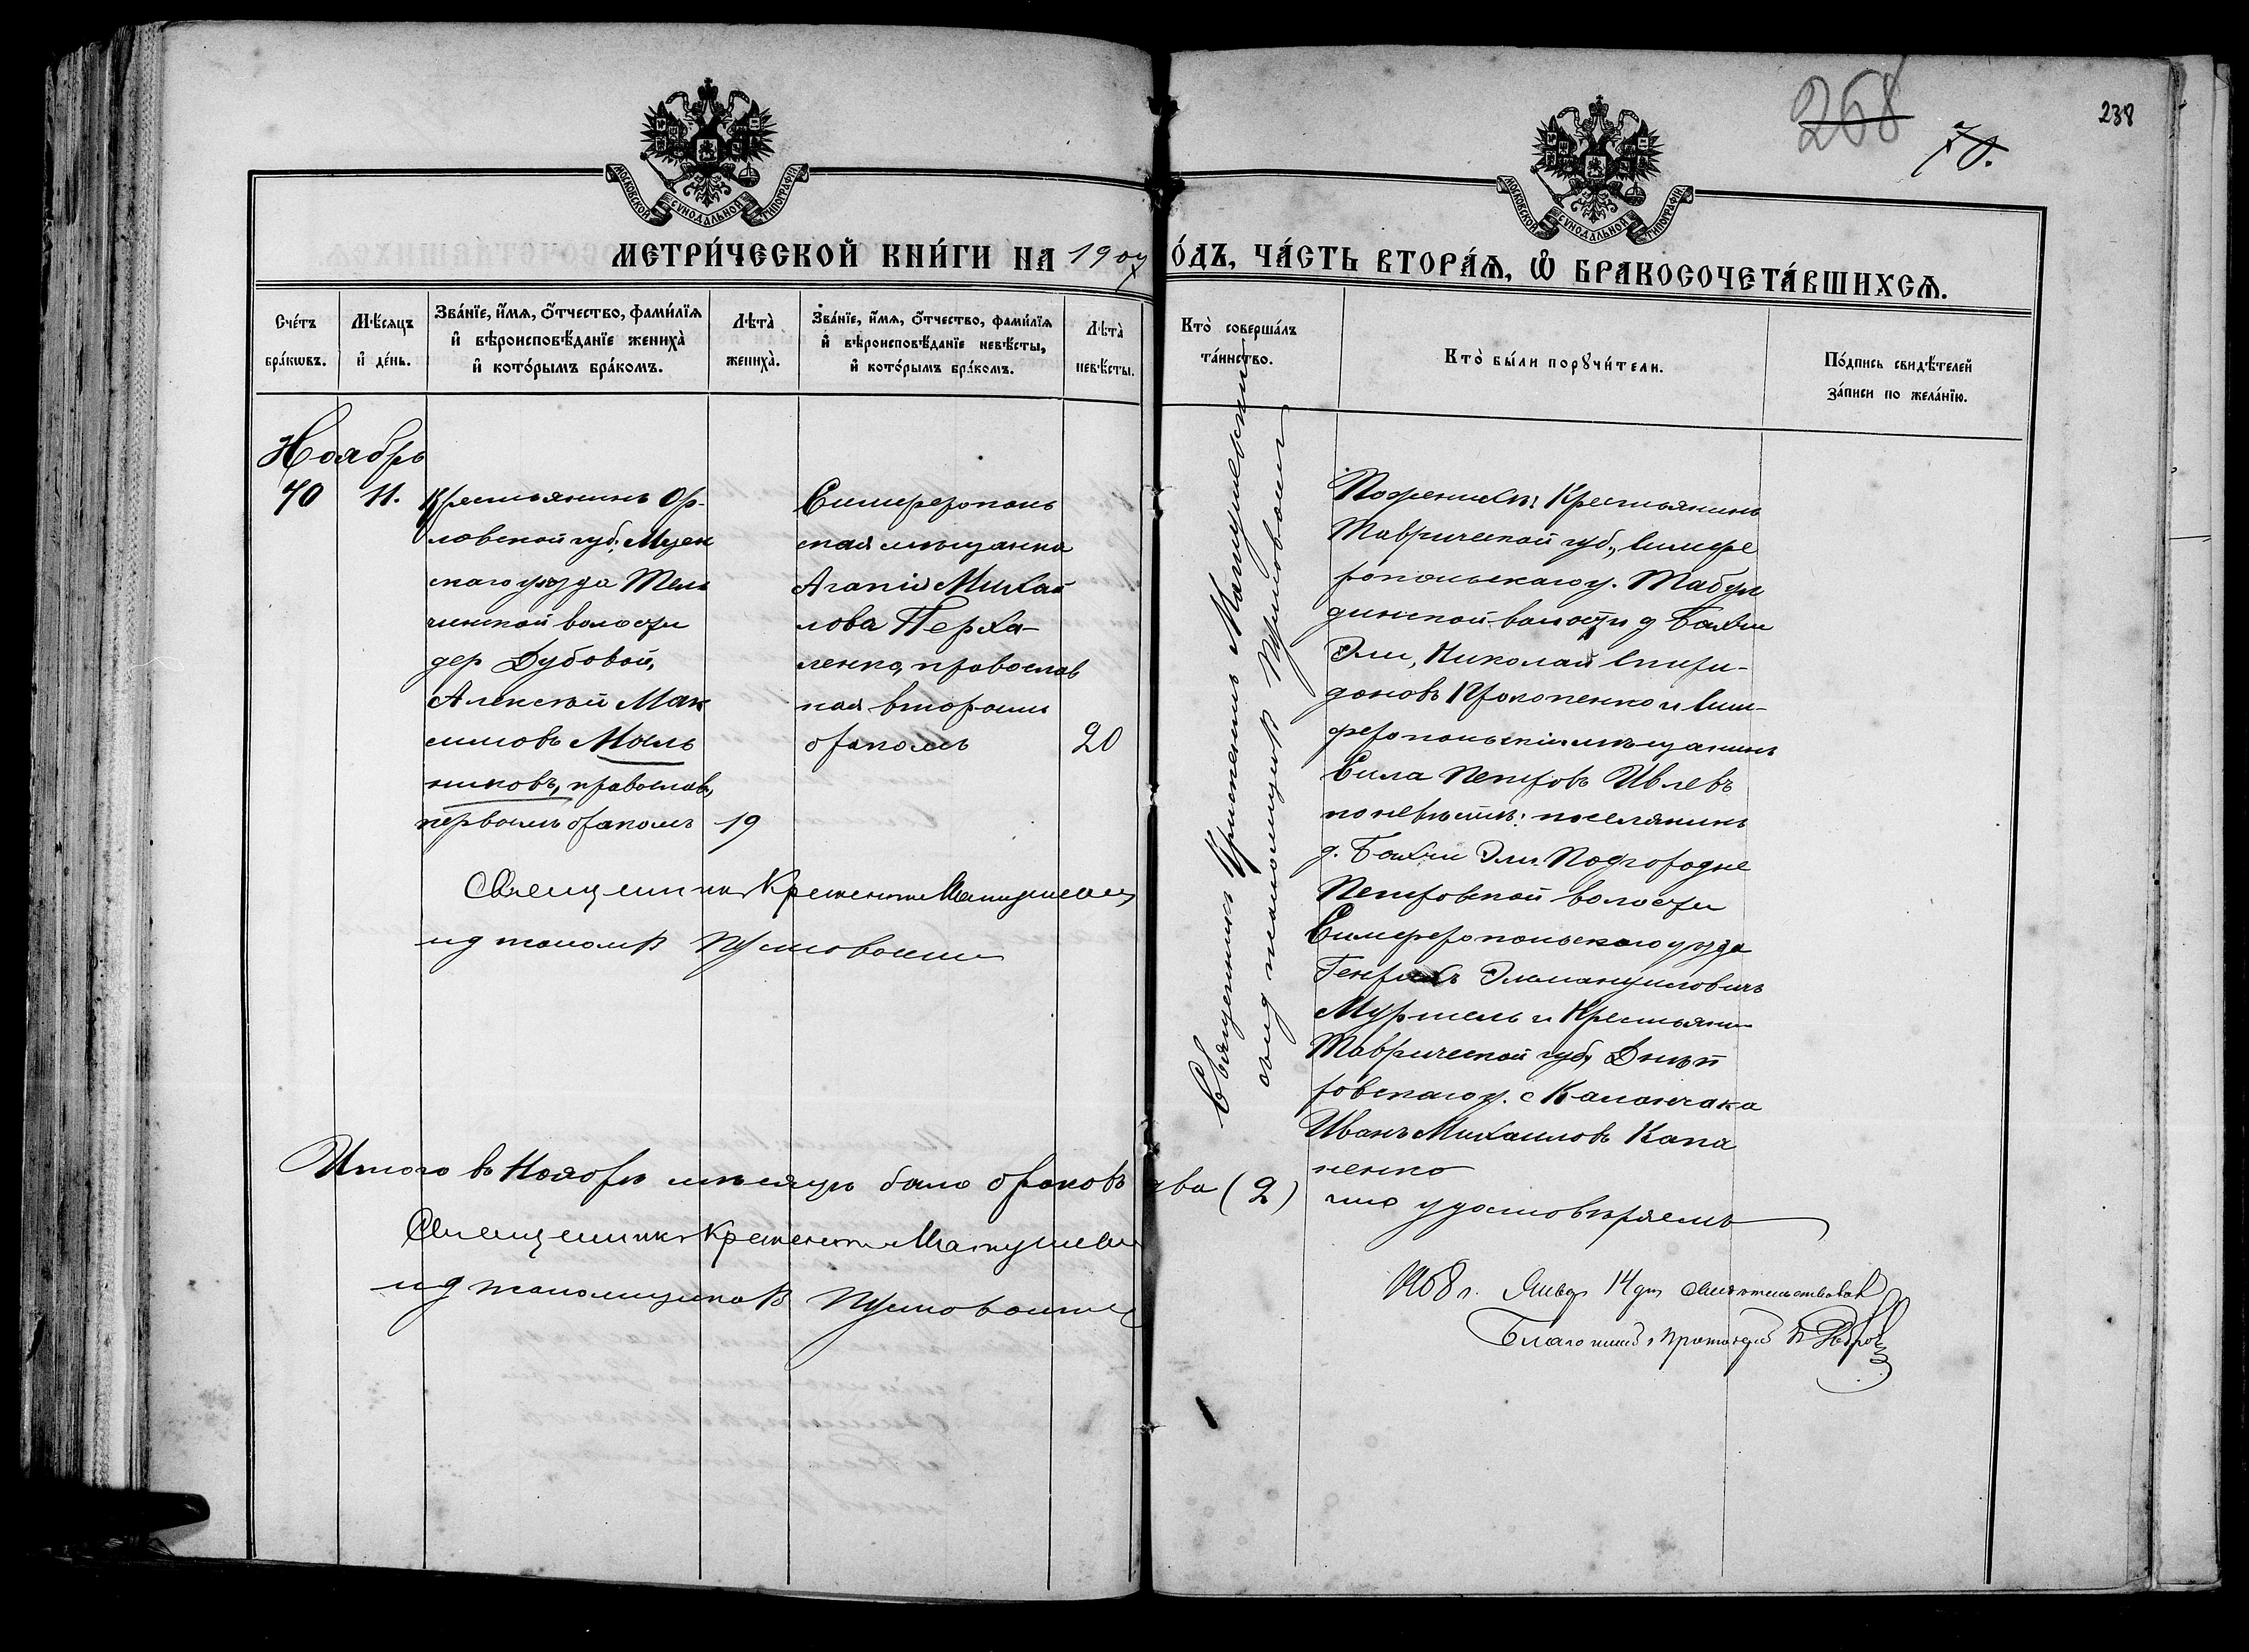 268
70.
238
МОСКОВСКОЙ СѴНОДАЛЬНОЙ ТИПОГРАФІИ
МОСКОВСКОЙ СѴНОДАЛЬНОЙ ТИПОГРАФІИ
МЕТРИ́ЧЕСКОЙ КНИ́ГИ НА 1907 ÓДЪ, ЧА́СТЬ ВТОРА́Ѧ, Ѽ БРАКОСОЧЕТА́ВШИХСѦ.
Сче́тъ бра́кѡвъ.
Мѣ́сѧцъ и҆ де́нь.
Зва́нїе, и҆́мѧ, ѻ҆́тчество, фами́лїѧ
и҆ вѣроисповѣ́данїе жениха̀
и҆ кото́рымъ бра́комъ.
Лѣта̀ жениха̀.
Зва́нїе, и҆́мѧ, ѻ҆́тчество, фами́лїѧ
и҆ вѣроисповѣ́данїе невѣ́сты,
и҆ кото́рымъ бра́комъ.
Лѣта̀ невѣ́сты.
Кто̀ соверша́лъ
та́инство.
Кто̀ бы́ли порꙋчи́тели.
По́дпись свидѣ́телей
за́писи по жела́нїю.
Ноябрь
70
11.
Крестьянинъ Ор-
ловской губ. Мцен
скаго уезда Тель
чинской волости
дер Дубовой,
Алексѣй Мак
симовъ Мыль
никовъ, православ,
первымъ бракомъ
19
Симферополь
ская мѣщанка
Агапія Михай
лова Перха-
ленко, православ
ная вторымъ
бракомъ
20
Священникъ
псаломщикъ
Поженихѣ: Крестьянинъ
Таврической губ., Симфе
ропольскаго у. Табул
динской волости д Бахчи
Эли, Николай Спири-
доновъ Прокопенко и Сим-
феропольскій мѣщанинъ
Сила Петровъ Ивлевъ
по невѣстѣ: поселянинъ
д. Бахчи Эли Подгородне
Петровской волости
Симферопольскаго уезда
Генрихъ Эммануиловичъ
и Крестьянин
Таврической губ, Днѣп
ровскаго у. с Каланчака
Иванъ Михаиловъ Капа
ненко
Священникъ
Священникъ
псаломщикъ
Итого въ Ноябрѣ мѣсяцѣ было браковъ два (2)
что удостовѣряемъ
1908 г. Январ 14 дня свидѣтельствовалъ
Благочинный Протоіерей